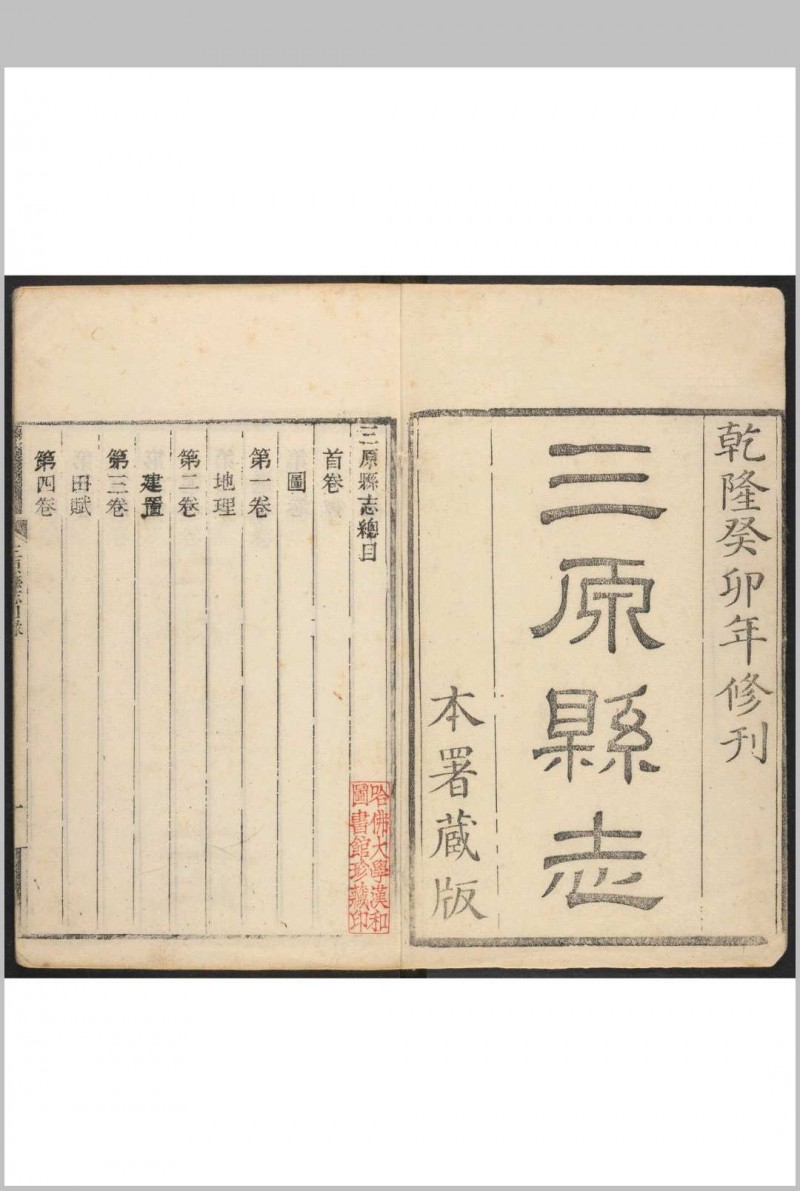 乾隆癸卯年修刊
三原縣志
本署藏版
三原縣志總目
首卷
圖
第一卷
地理
第二卷
建置
第三卷
田賦
第四卷
哈佛大學漢和
圖書館珍藏印